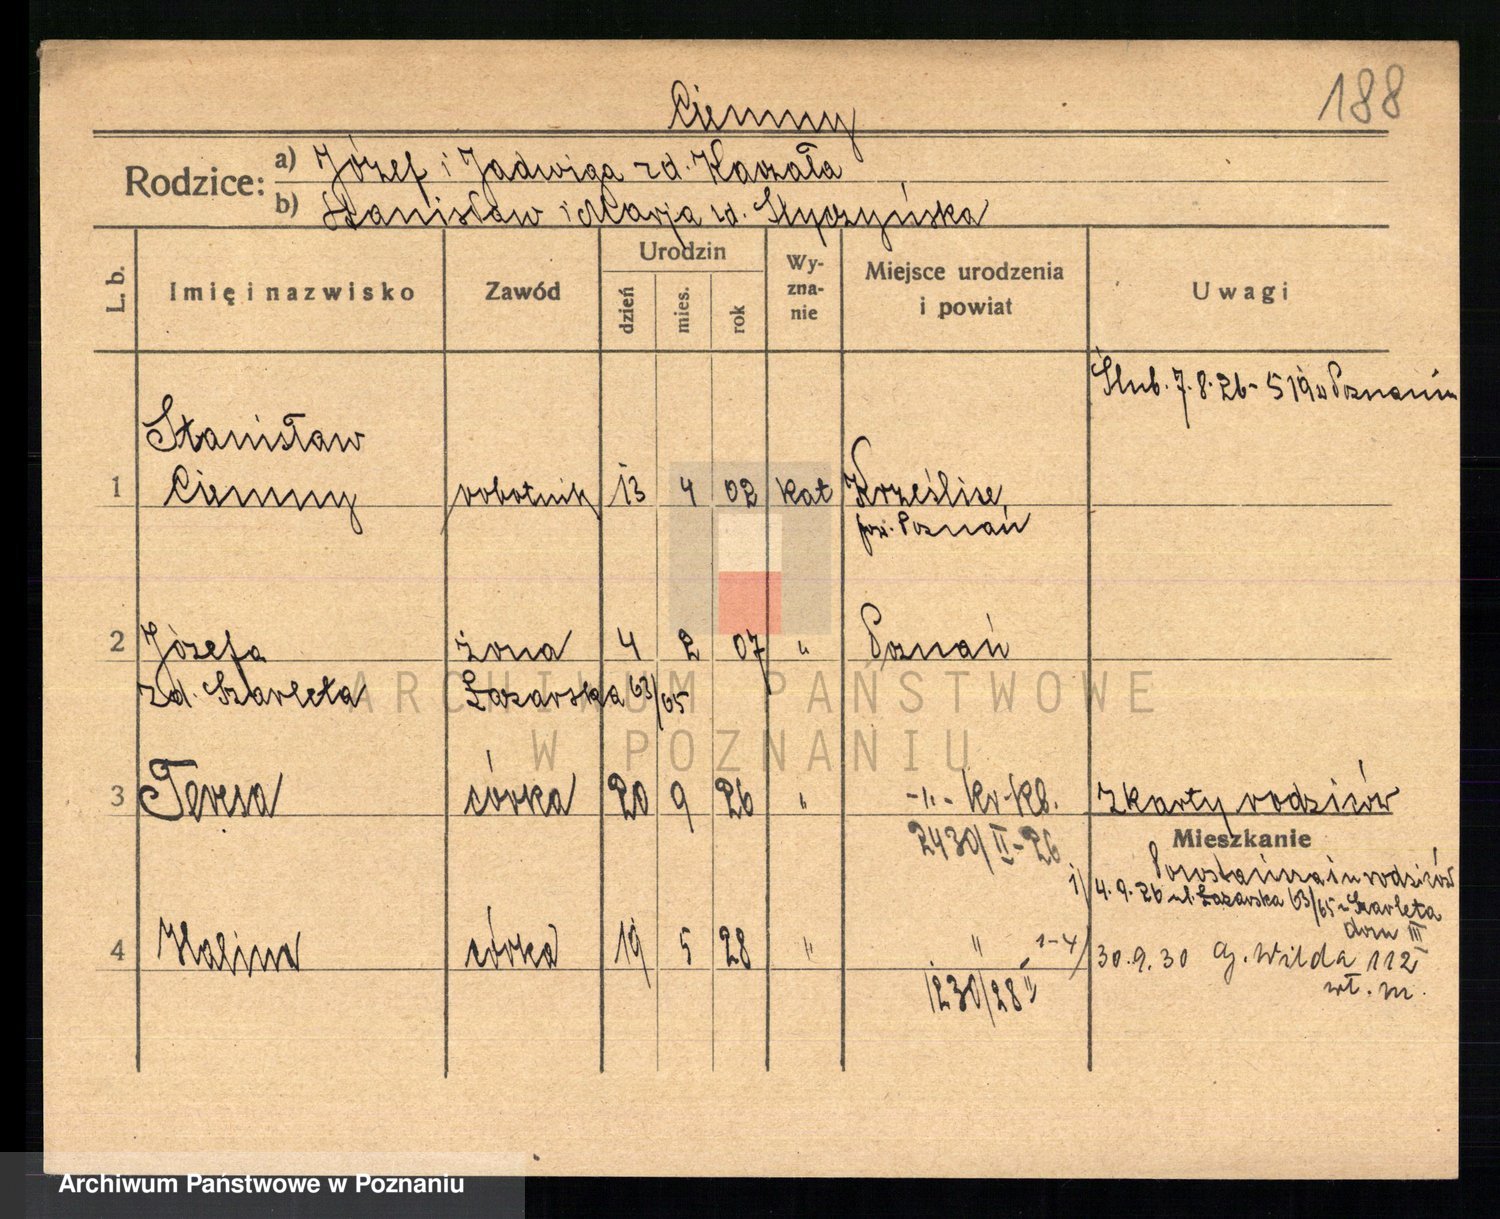 188
Ciemny
Rodzice: a) Józef i Jadwiga zd. Karzała
b) Stanisław i Marja zd. Styczyńska
L. b. Imię i nazwisko Zawód Urodzin dzień mies. rok Wy-zna-nie Miejsce urodzenia i powiat Uwagi
Ślub. 7.8.26 - 519 w Poznaniu
Stanisław
1 Ciemny robotnik 13 4 02 kat Krześlice
pow. Poznań
2 Józefa żona 4 2 07 " Poznań
zd. Szarleta Łazarska 63/65
3 Teresa córka 20 9 26 " -"- kr. Kb. z karty rodziców
2430/II-26
Mieszkanie
i u rodziców
1/ 4.9.26 ul. Łazarska 63/65 u Szarleta
dom III
4 Halina córka 19 5 28 " " 1-4/ 30.9.30 G. Wilda 112
1230/28 wł. m.
ARCHIWUM PAŃSTWOWE
W POZNANIU
Archiwum Państwowe w Poznaniu